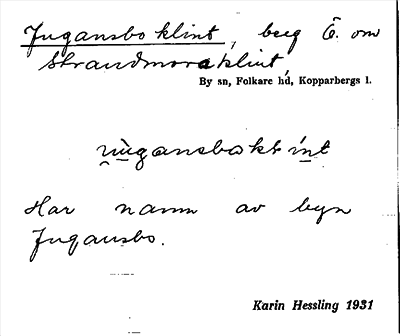 Jugansbo klint, berg Ö. om
Strandmoraklint,
By sn, Folkare hd, Kopparbergs l.
Har namn av byn
Jugansbo.
Karin Hessling 1931